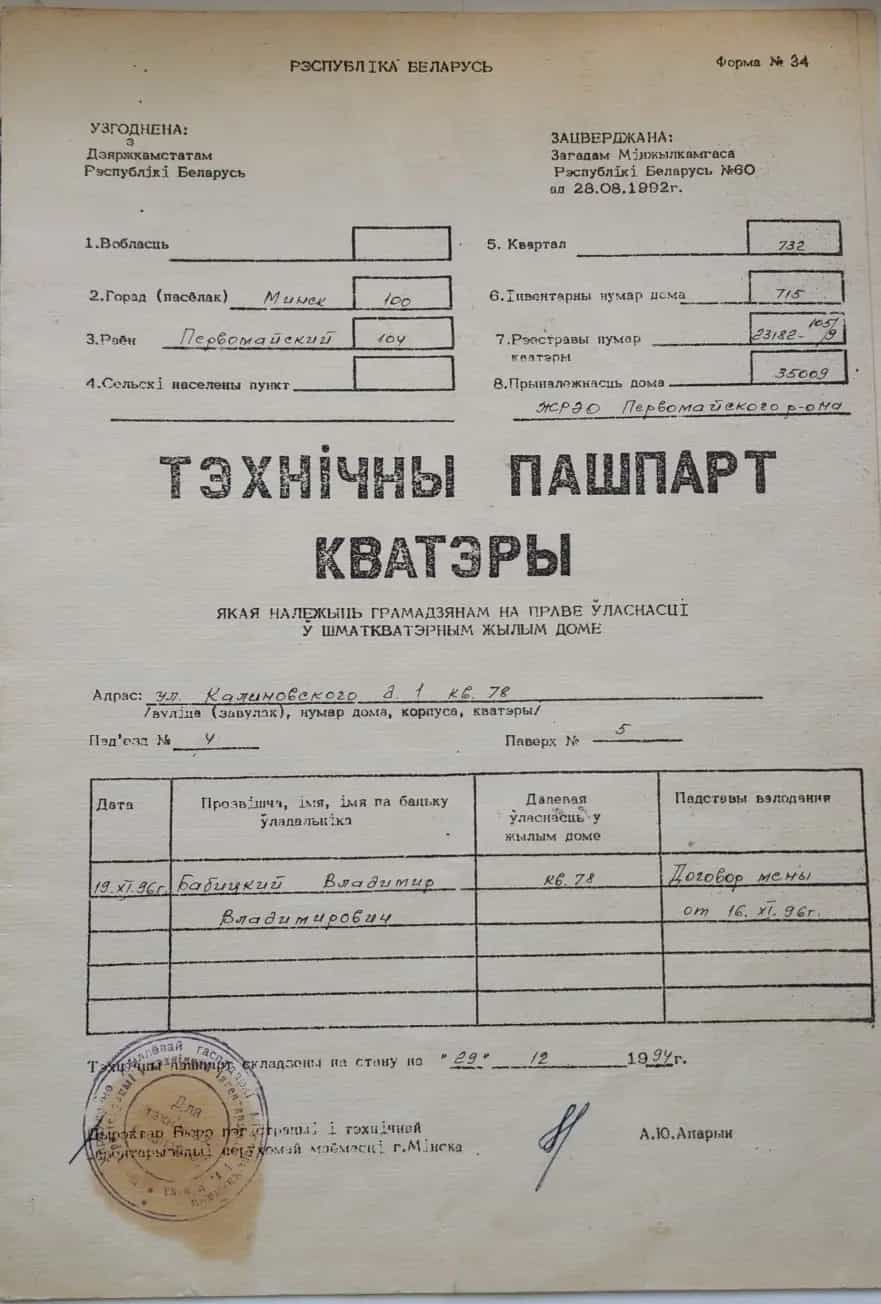 РЭСПУБЛІКА БЕЛАРУСЬ
Форма № 34
УЗГОДНЕНА:
З
Дзяржкамстатам
Рэспублікі Беларусь
ЗАЦВЕРДЖАНА:
Загадам Мінжылкамгаса
Рэспублікі Беларусь №60
ад 28.08.1992г.
1.Вобласць
2.Горад (пасёлак) Минск 100
3.Раён Первомайский 104
4.Сельскі населены пункт
5. Квартал 732
6.Інвентарны нумар дома 715
7.Рэестравы нумар кватэры 23182-1051/9
8.Прыналежнасць дома 35009
ЖРЭО Первомайского р-она
ТЭХНІЧНЫ ПАШПАРТ
КВАТЭРЫ
ЯКАЯ НАЛЕЖЫЦЬ ГРАМАДЗЯНАМ НА ПРАВЕ ЎЛАСНАСЦІ
Ў ШМАТКВАТЭРНЫМ ЖЫЛЫМ ДОМЕ
Адрас: ул. Калиновского д. 1 кв. 78
/вуліца (завулак), нумар дома, корпуса, кватэры/
Пад'езд № 4
Паверх № 5
Дата
Прозвішча, імя, імя па бацьку
ўладальніка
Далевая
ўласнасць у
жылым доме
Падставы валодання
19.XI.96г. Бабицкий Владимир кв. 78 Договор мены
Владимирович от 16. XI. 96г.
Тэхнічны пашпарт складзены па стану на "29" 12 1994г.
Дырэктар Бюро рэгістрацыі і тэхнічнай
інвентарызацыі нерухомай маёмасці г.Мінска
А.Ю.Апарын
Для